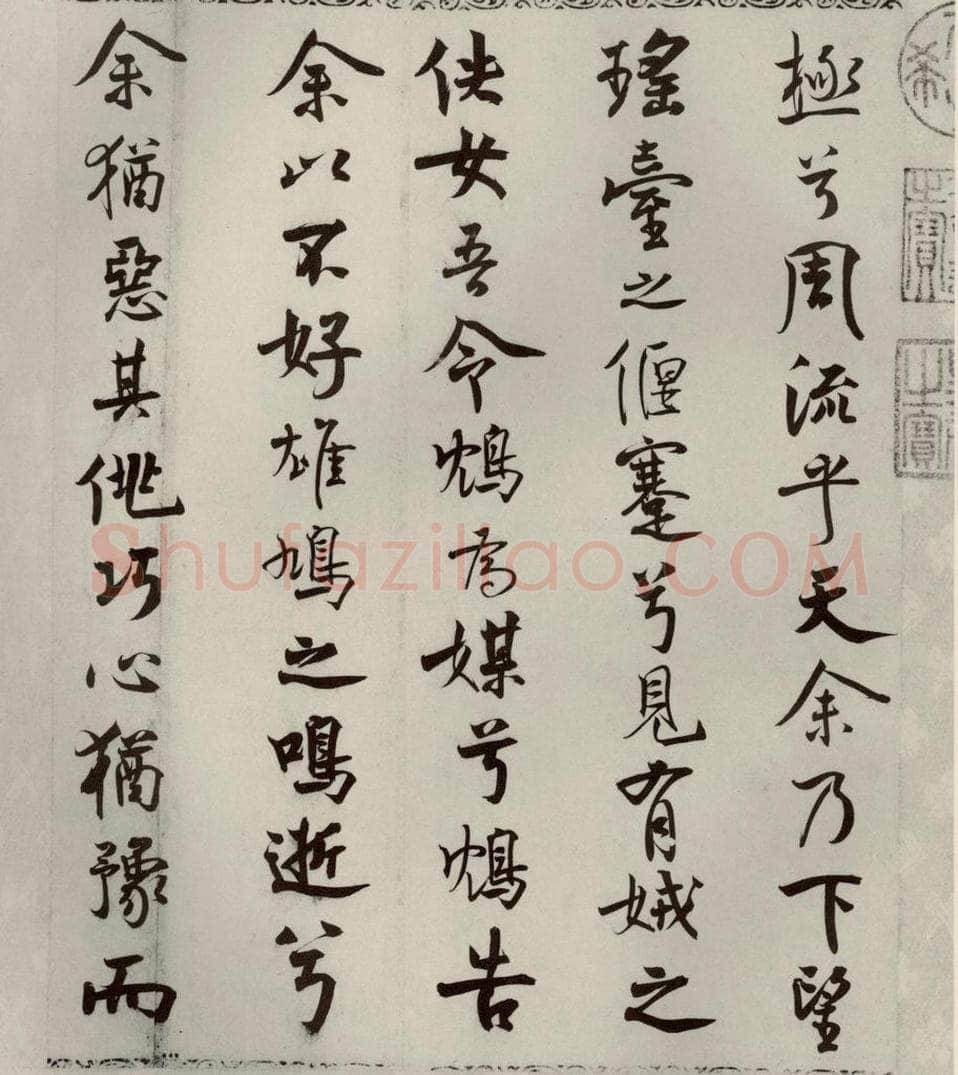 極兮周流乎天余乃下望
瑤臺之偃蹇兮見有娀之
佚女吾令鴆為媒兮鴆告
余以不好雄鳩之鳴逝兮
余猶惡其佻巧心猶豫而
Shufaziliao.COM
之寶
之寶